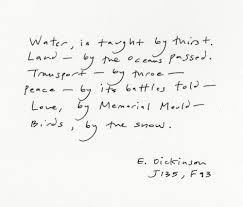 Water, is taught by thirst.
Land — by the oceans passed.
Transport — by throe —
Peace — by its battles told —
Love, by Memorial Mould —
Birds, by the snow.
E. Dickinson
J135, F93